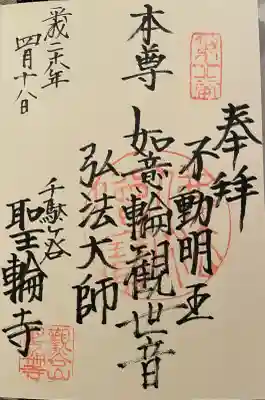 奉拝
不動明王
本尊 如意輪観世音
弘法大師
千駄ヶ谷
聖輪寺
平成二十八年
四月十八日